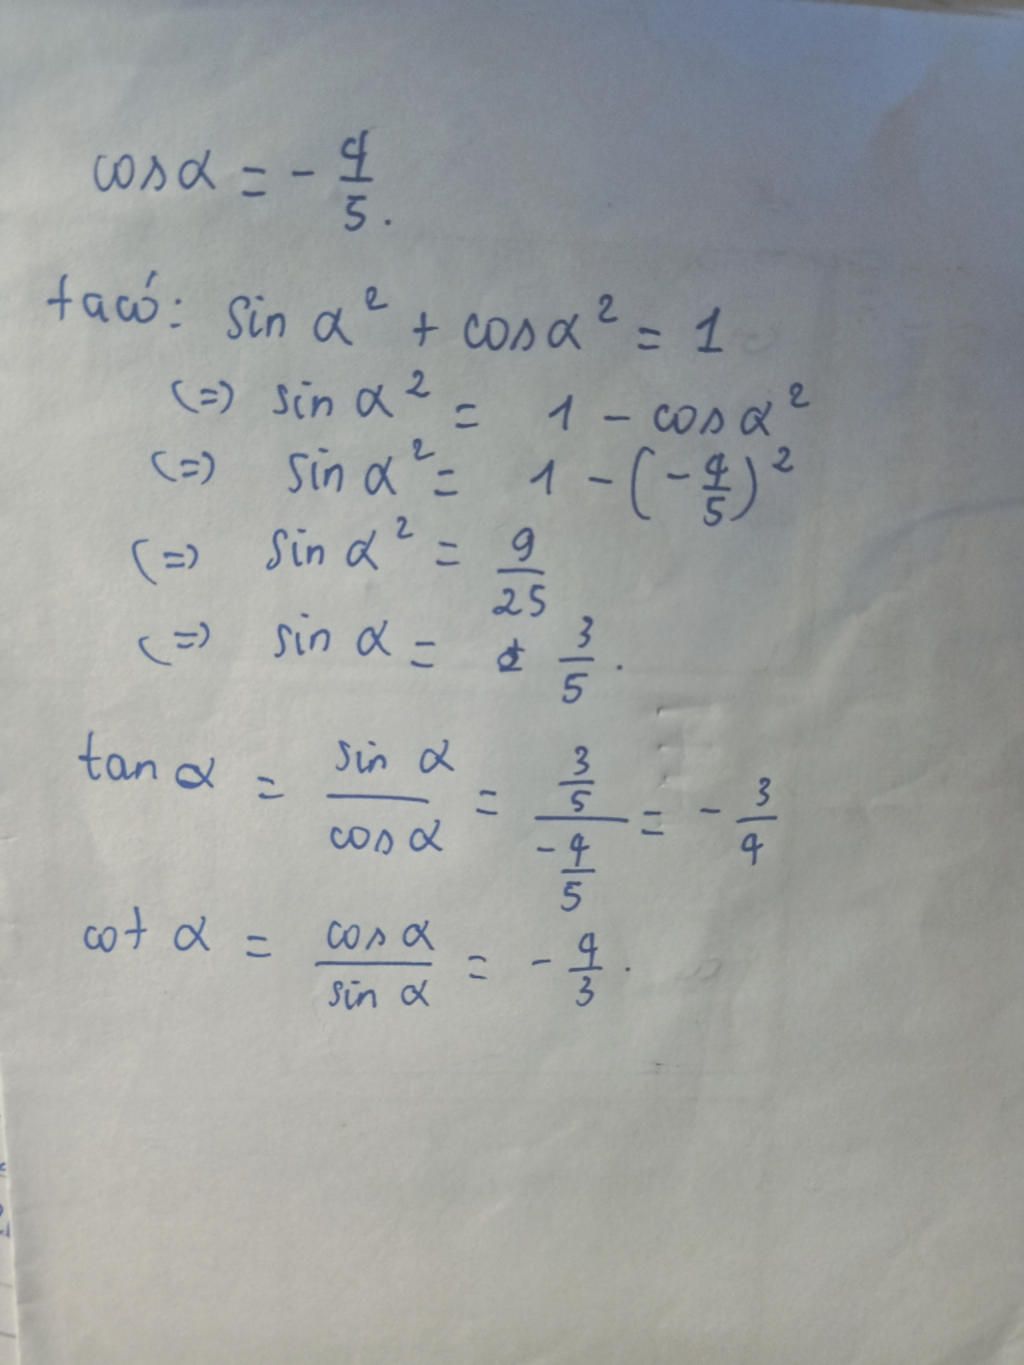 cosα = - 4/5.
ta có: sin α² + cosα² = 1
(=) sin α² = 1 - cosα²
(=) sin α² = 1 - (-4/5)²
(=) sin α² = 9/25
(=) sin α = 3/5.
tan α = sin α / cos α = 3/5 / -4/5 = - 3/4
cot α = cos α / sin α = - 4/3.